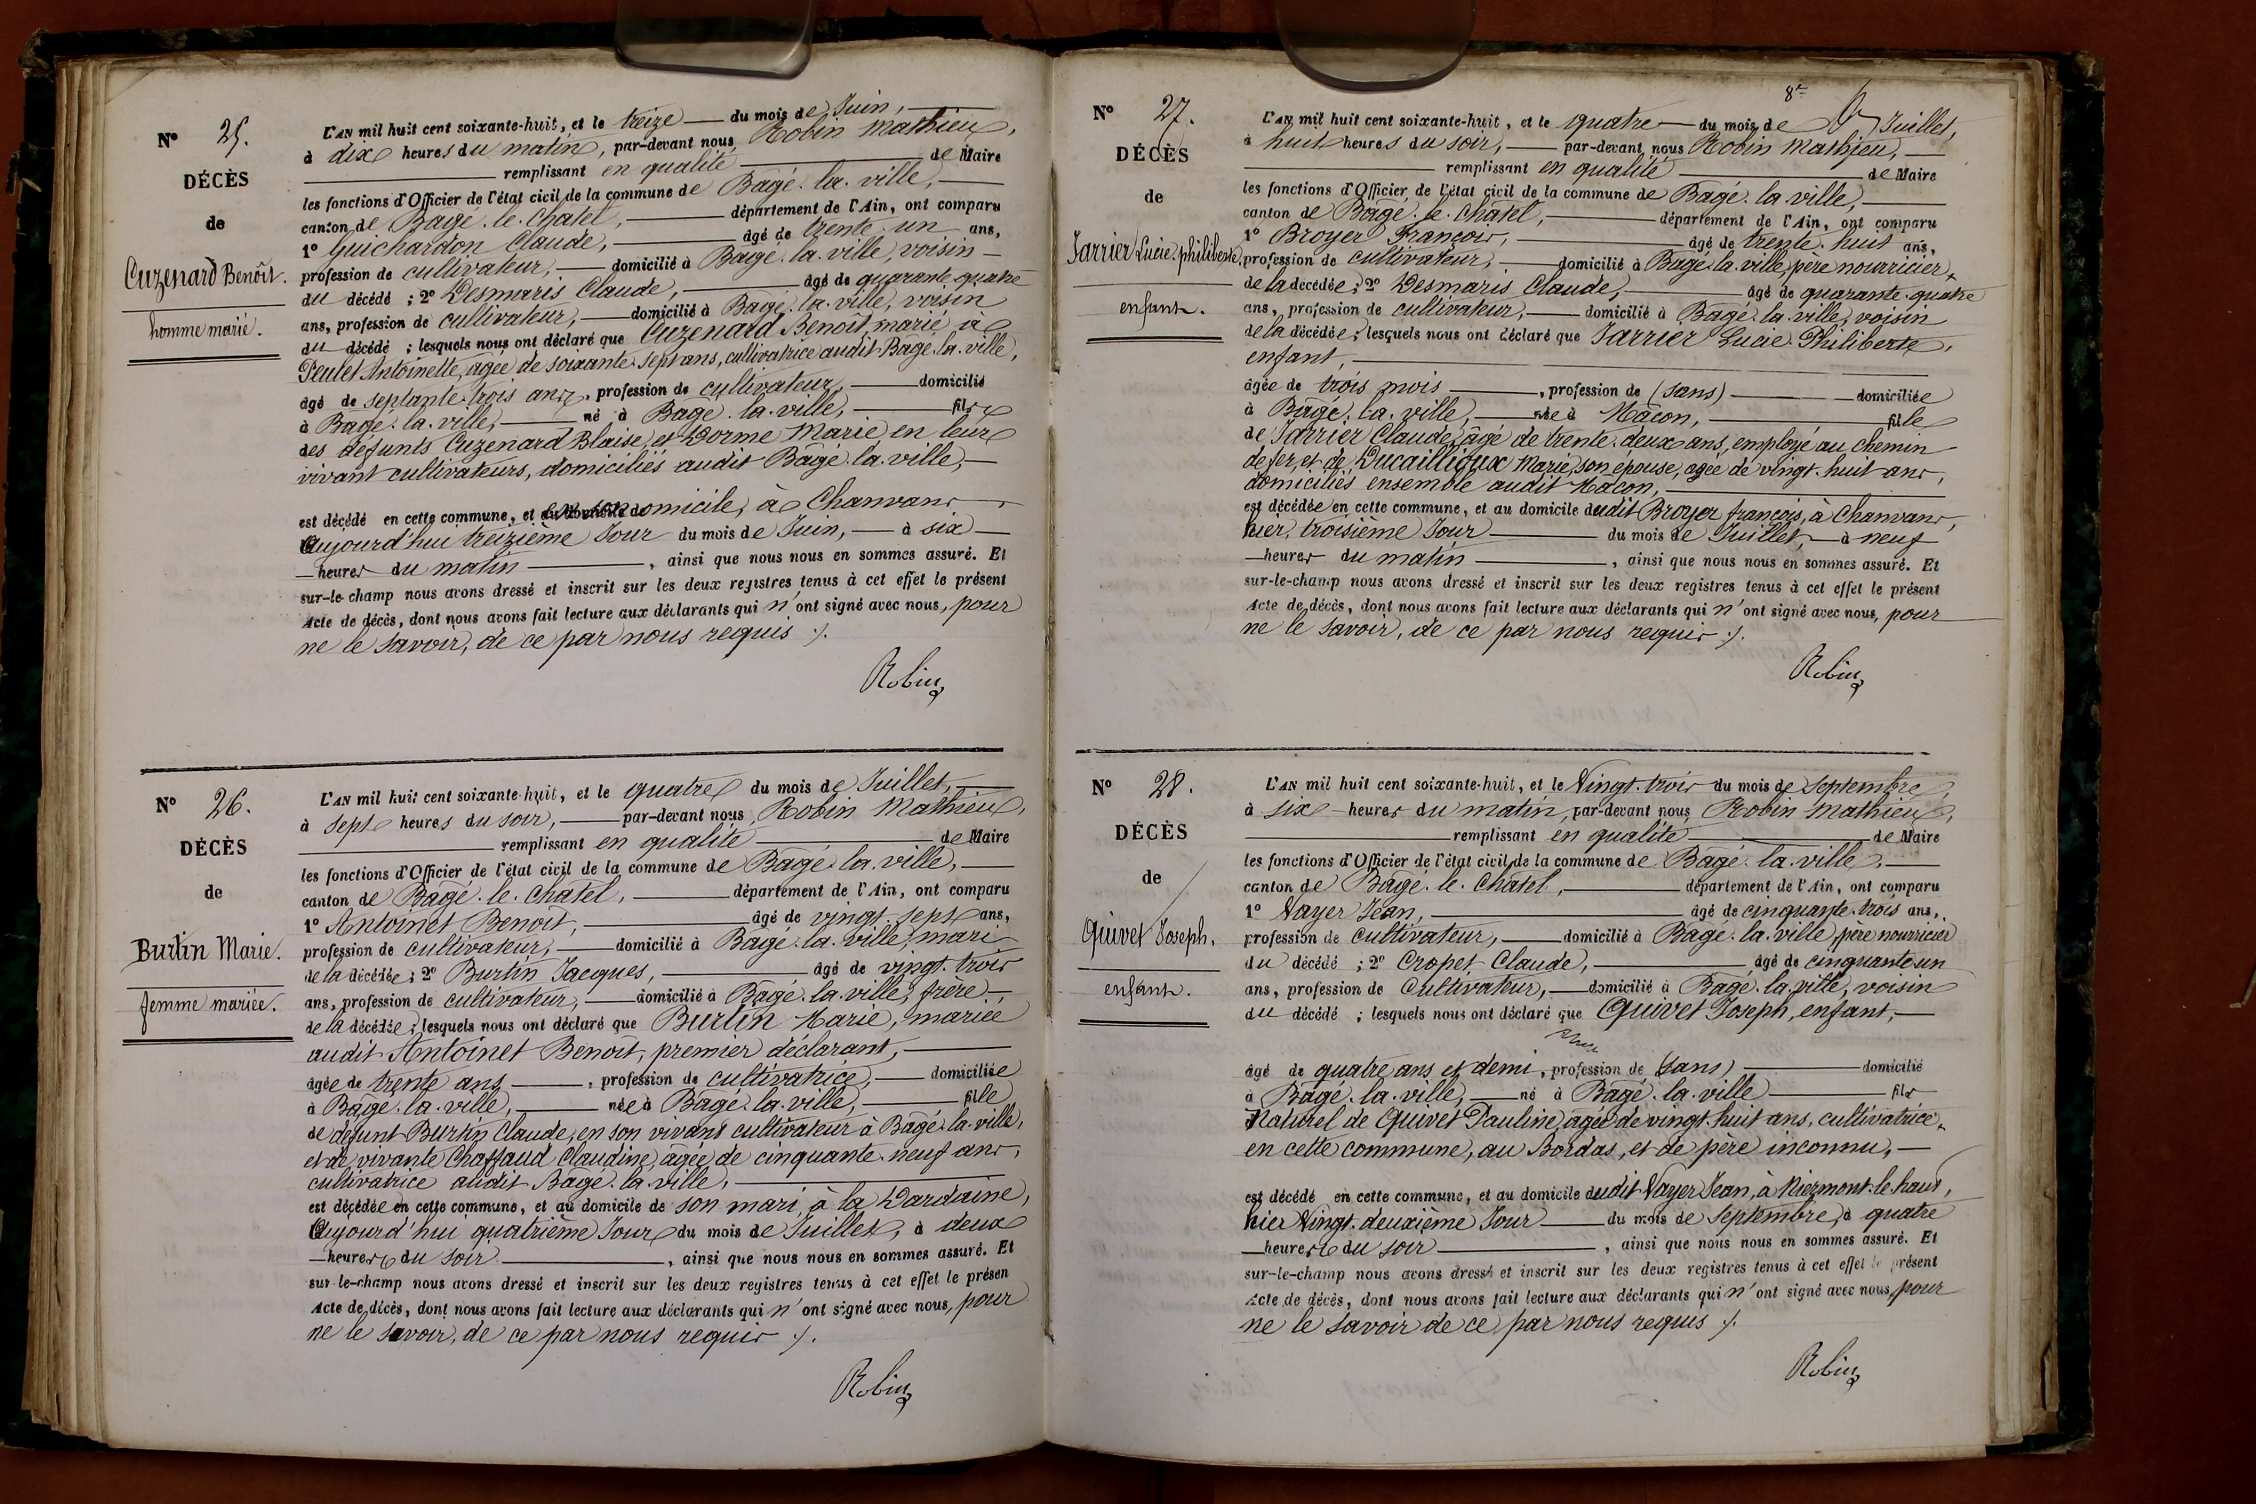 N° 25.
DÉCÈS
de
Cuzenard Benoît.
homme marié.
L'AN mil huit cent soixante-huit, et le treize du mois de Juin,
à dix heures du matin, par-devant nous Robin Mathieu,
remplissant en qualité de Maire
les fonctions d'Officier de l'état civil de la commune de Bagé-la-ville,
canton de Bagé-le-Chatel, département de l'Ain, ont comparu
1° Guichardon Claude, âgé de trente-un ans,
profession de cultivateur, domicilié à Bagé-la-ville, voisin
du décédé ; 2° Desmaris Claude, âgé de quarante-quatre
ans, profession de cultivateur, domicilié à Bagé-la-ville, voisin
du décédé ; lesquels nous ont déclaré que Cuzenard Benoît, marié à
Peulet Antoinette, agée de soixante-sept ans, cultivatrice audit Bagé-la-ville,
âgé de septante-trois ans, profession de cultivateur, domicilié
à Bagé-la-ville, né à Bagé-la-ville, fils
des défunts Cuzenard Blaise, et Dorme Marie en leur
vivant cultivateurs, domiciliés audit Bagé-la-ville,
est décédé en cette commune, et en son domicile, à Chanvans
aujourd'hui treizième Jour du mois de Juin, à six
heures du matin, ainsi que nous nous en sommes assuré. Et
sur-le-champ nous avons dressé et inscrit sur les deux registres tenus à cet effet le présent
Acte de décès, dont nous avons fait lecture aux déclarants qui n'ont signé avec nous, pour
ne le savoir, de ce par nous requis ./.
Robin
N° 26.
DÉCÈS
de
Burtin Marie.
femme mariée.
L'AN mil huit cent soixante-huit, et le quatre du mois de Juillet,
à sept heures du soir, par-devant nous Robin Mathieu,
remplissant en qualité de Maire
les fonctions d'Officier de l'état civil de la commune de Bagé-la-ville,
canton de Bagé-le-Chatel, département de l'Ain, ont comparu
1° Antoinet Benoît, âgé de vingt-sept ans,
profession de cultivateur, domicilié à Bagé-la-ville, mari
de la décédée ; 2° Burtin Jacques, âgé de vingt-trois
ans, profession de cultivateur, domicilié à Bagé-la-ville, frère
de la décédée ; lesquels nous ont déclaré que Burtin Marie, mariée
audit Antoinet Benoît, premier déclarant,
âgée de trente ans, profession de cultivatrice, domiciliée
à Bagé-la-ville, née à Bagé-la-ville, fille
de défunt Burtin Claude, en son vivant cultivateur à Bagé-la-ville,
et de vivante Chaffaud Claudine, agée de cinquante-neuf ans,
cultivatrice audit Bagé-la-ville,
est décédée en cette commune, et au domicile de son mari, à la Dardaine,
aujourd'hui quatrième Jour du mois de Juillet, à deux
heures du soir, ainsi que nous nous en sommes assuré. Et
sur-le-champ nous avons dressé et inscrit sur les deux registres tenus à cet effet le présen
Acte de décès, dont nous avons fait lecture aux déclarants qui n'ont signé avec nous, pour
ne le savoir, de ce par nous requis ./.
Robin
8e
N° 27.
DÉCÈS
de
Jarrier Lucie-philiberte,
enfant.
L'AN mil huit cent soixante-huit, et le quatre du mois de Juillet,
à huit heures du soir, par-devant nous Robin Mathieu,
remplissant en qualité de Maire
les fonctions d'Officier de l'état civil de la commune de Bagé-la-ville,
canton de Bagé-le-Chatel, département de l'Ain, ont comparu
1° Broyer François, âgé de trente-huit ans,
profession de cultivateur, domicilié à Bagé-la-ville, père nourricier
de la décédée ; 2° Desmaris Claude, âgé de quarante-quatre
ans, profession de cultivateur, domicilié à Bagé-la-ville, voisin
de la décédée ; lesquels nous ont déclaré que Jarrier Lucie-Philiberte,
enfant,
âgée de trois mois, profession de (sans) domiciliée
à Bagé-la-ville, née à Macon, fille
de Jarrier Claude, âgé de trente-deux ans, employé au chemin
de fer, et de Ducaillioux Marie, son épouse, agée de vingt-huit ans,
domiciliés ensemble audit Macon,
est décédée en cette commune, et au domicile dudit Broyer françois, à Chanvans,
hier, troisième Jour du mois de Juillet, à neuf
heures du matin, ainsi que nous nous en sommes assuré. Et
sur-le-champ nous avons dressé et inscrit sur les deux registres tenus à cet effet le présent
Acte de décès, dont nous avons fait lecture aux déclarants qui n'ont signé avec nous, pour
ne le savoir, de ce par nous requis ./.
Robin
N° 28.
DÉCÈS
de
Quivet Joseph.
enfant.
L'AN mil huit cent soixante-huit, et le Vingt-trois du mois de Septembre,
à six heures du matin, par-devant nous Robin Mathieu,
remplissant en qualité de Maire
les fonctions d'Officier de l'état civil de la commune de Bagé-la-ville,
canton de Bagé-le-Chatel, département de l'Ain, ont comparu
1° Vayer Jean, âgé de cinquante-trois ans,
profession de cultivateur, domicilié à Bagé-la-ville, père nourricier
du décédé ; 2° Cropet Claude, âgé de cinquante-un
ans, profession de Cultivateur, domicilié à Bagé-la-ville, voisin
du décédé ; lesquels nous ont déclaré que Quivet Joseph, enfant,
âgé de quatre ans et demi, profession de (sans) domicilié
à Bagé-la-ville, né à Bagé-la-ville fils
Naturel de Quivet Pauline, agée de vingt-huit ans, cultivatrice
en cette commune, au Bordas, et de père inconnu,
est décédé en cette commune, et au domicile dudit Vayer Jean, à Niermont-le-haut,
hier Vingt-deuxième Jour du mois de Septembre, à quatre
heures du soir, ainsi que nous nous en sommes assuré. Et
sur-le-champ nous avons dressé et inscrit sur les deux registres tenus à cet effet le présent
Acte de décès, dont nous avons fait lecture aux déclarants qui n'ont signé avec nous, pour
ne le savoir de ce par nous requis ./.
Robin